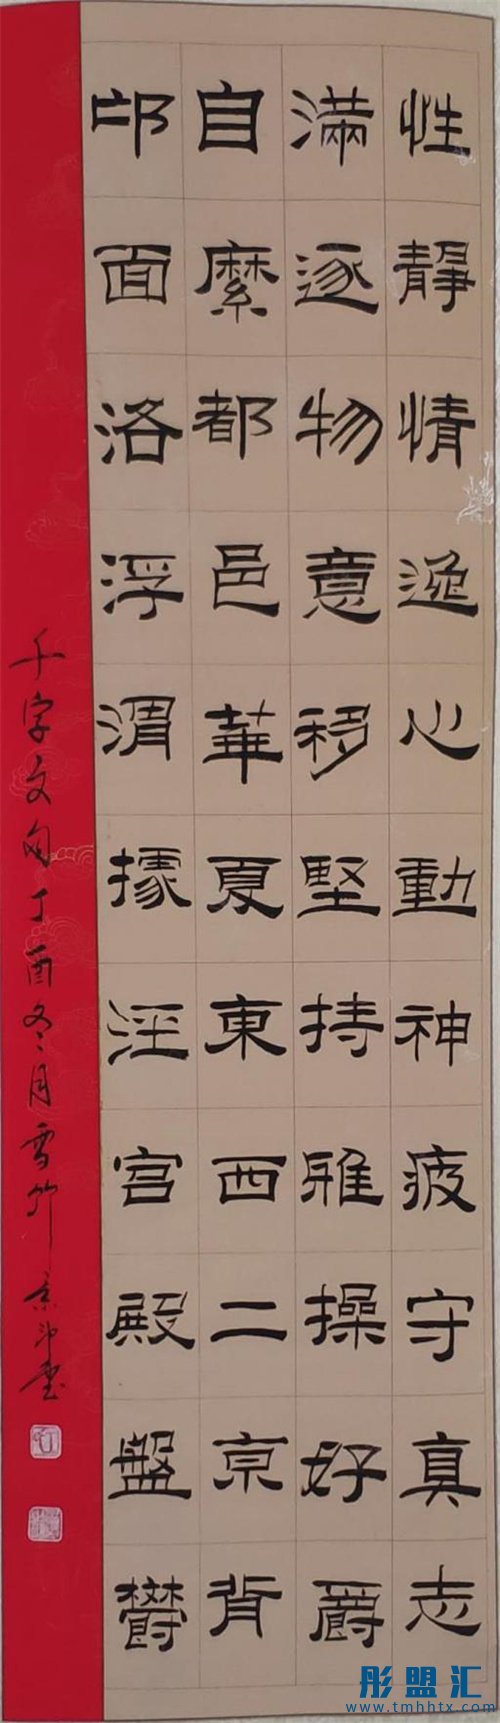 性靜情逸心動神疲守真志
滿逐物意移堅持雅操好爵
自縻都邑華夏東西二京背
邙面洛浮渭據涇宮殿盤鬱
千字文句丁酉冬月雪竹
彤盟汇
www.tmhhtx.com